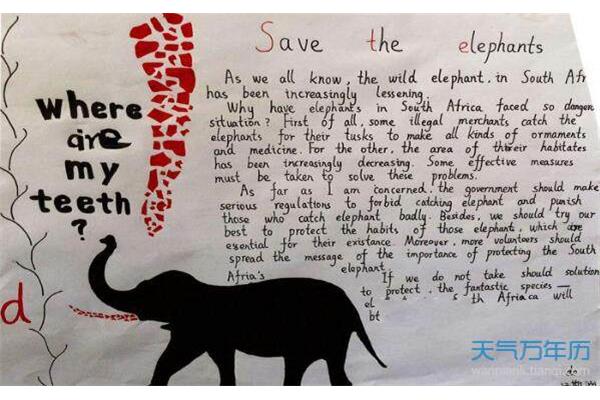 where
are
my
teeth
?
d
Save the elephants
As we all know, the wild elephant, in South Afr
has been increasingly lessening.
Why have elephants in South Africa faced so danger
situation? First of all, some illegal merchants catch the
elephants for their tusks to make all kinds of ornaments
and medicine. For the other, the area of their habitates
has been increasingly decreasing. Some effective measures
must be taken to solve these problems.
As far as I am concerned, the government should make
serious regulations to forbid catching elephant and punish
those who catch elephant badly. Besides, we should try our
best to protect the habits of those elephant, which are
essential for their existance. Moreover, more volunteers should
spread the message of the importance of protecting the South
Afria's elephant.
If we do not take should solution
to protect, the fantastic species —
el th Afriaca will
bt
do
天气万年历
wannianli.tianqi.com